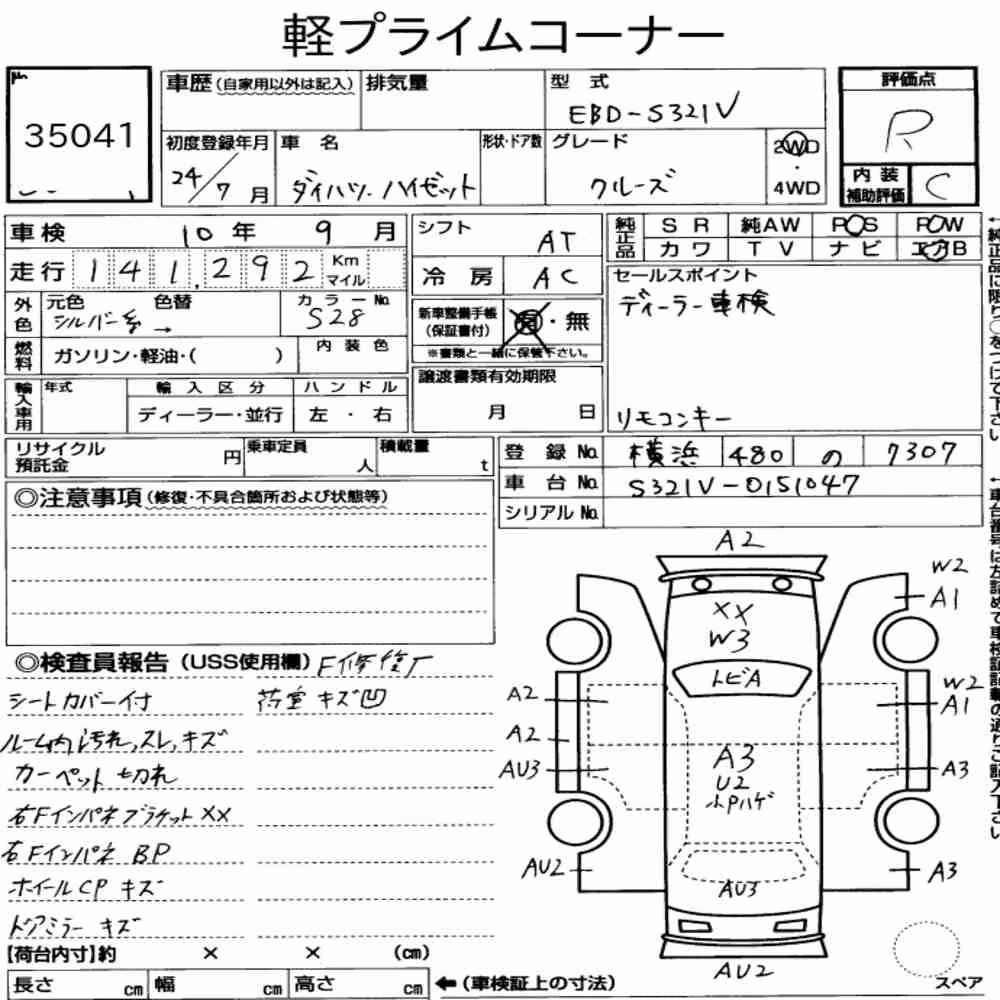 軽プライムコーナー
35041
車歴(自家用以外は記入) 排気量 型 式
EBD-S321V
初度登録年月 車 名 形状・ドア数 グレード
24/7月 ダイハツ ハイゼット クルーズ
2WD
・
4WD
評価点
R
内 装
補助評価 C
車検 10年 9月
走行 141,292 Km マイル
外色 元色 色替 カラーNo.
シルバー系 → S28
燃料 ガソリン・軽油・( ) 内 装 色
輸入車用 年式 輸 入 区 分 ハ ン ド ル
ディーラー・並行 左 ・ 右
シフト AT
冷 房 AC
新車整備手帳
(保証書付) 有・無
※書類と一緒に保管下さい。
譲渡書類有効期限
月 日
純正品 S R 純AW P S P W
カ ワ T V ナ ビ エアB
セールスポイント
ディーラー車検
リモコンキー
←純正品に限り○をつけて下さい
リサイクル
預託金 円 乗車定員 人 積載量 t
登 録 No. 横浜 480 の 7307
車 台 No. S321V-0151047
シリアル No.
←車台番号は左詰めで車検証記載の通りご記入下さい
◎注意事項(修復・不具合箇所および状態等)
◎検査員報告(USS使用欄) F修復有
シートカバー付 荷室 キズ凹
ルーム内汚れ,スレ,キズ
カーペット切れ
右Fインパネブラケット XX
右Fインパネ BP
ホイールCP キズ
ドアミラー キズ
A2
XX
W3
トビA
A3
U2
小Pハゲ
AU3
AU2
A2
A2
AU3
AU2
W2
A1
W2
A1
A3
A3
スペア
【荷台内寸】約 × × (cm)
長さ cm 幅 cm 高さ cm ←(車検証上の寸法)